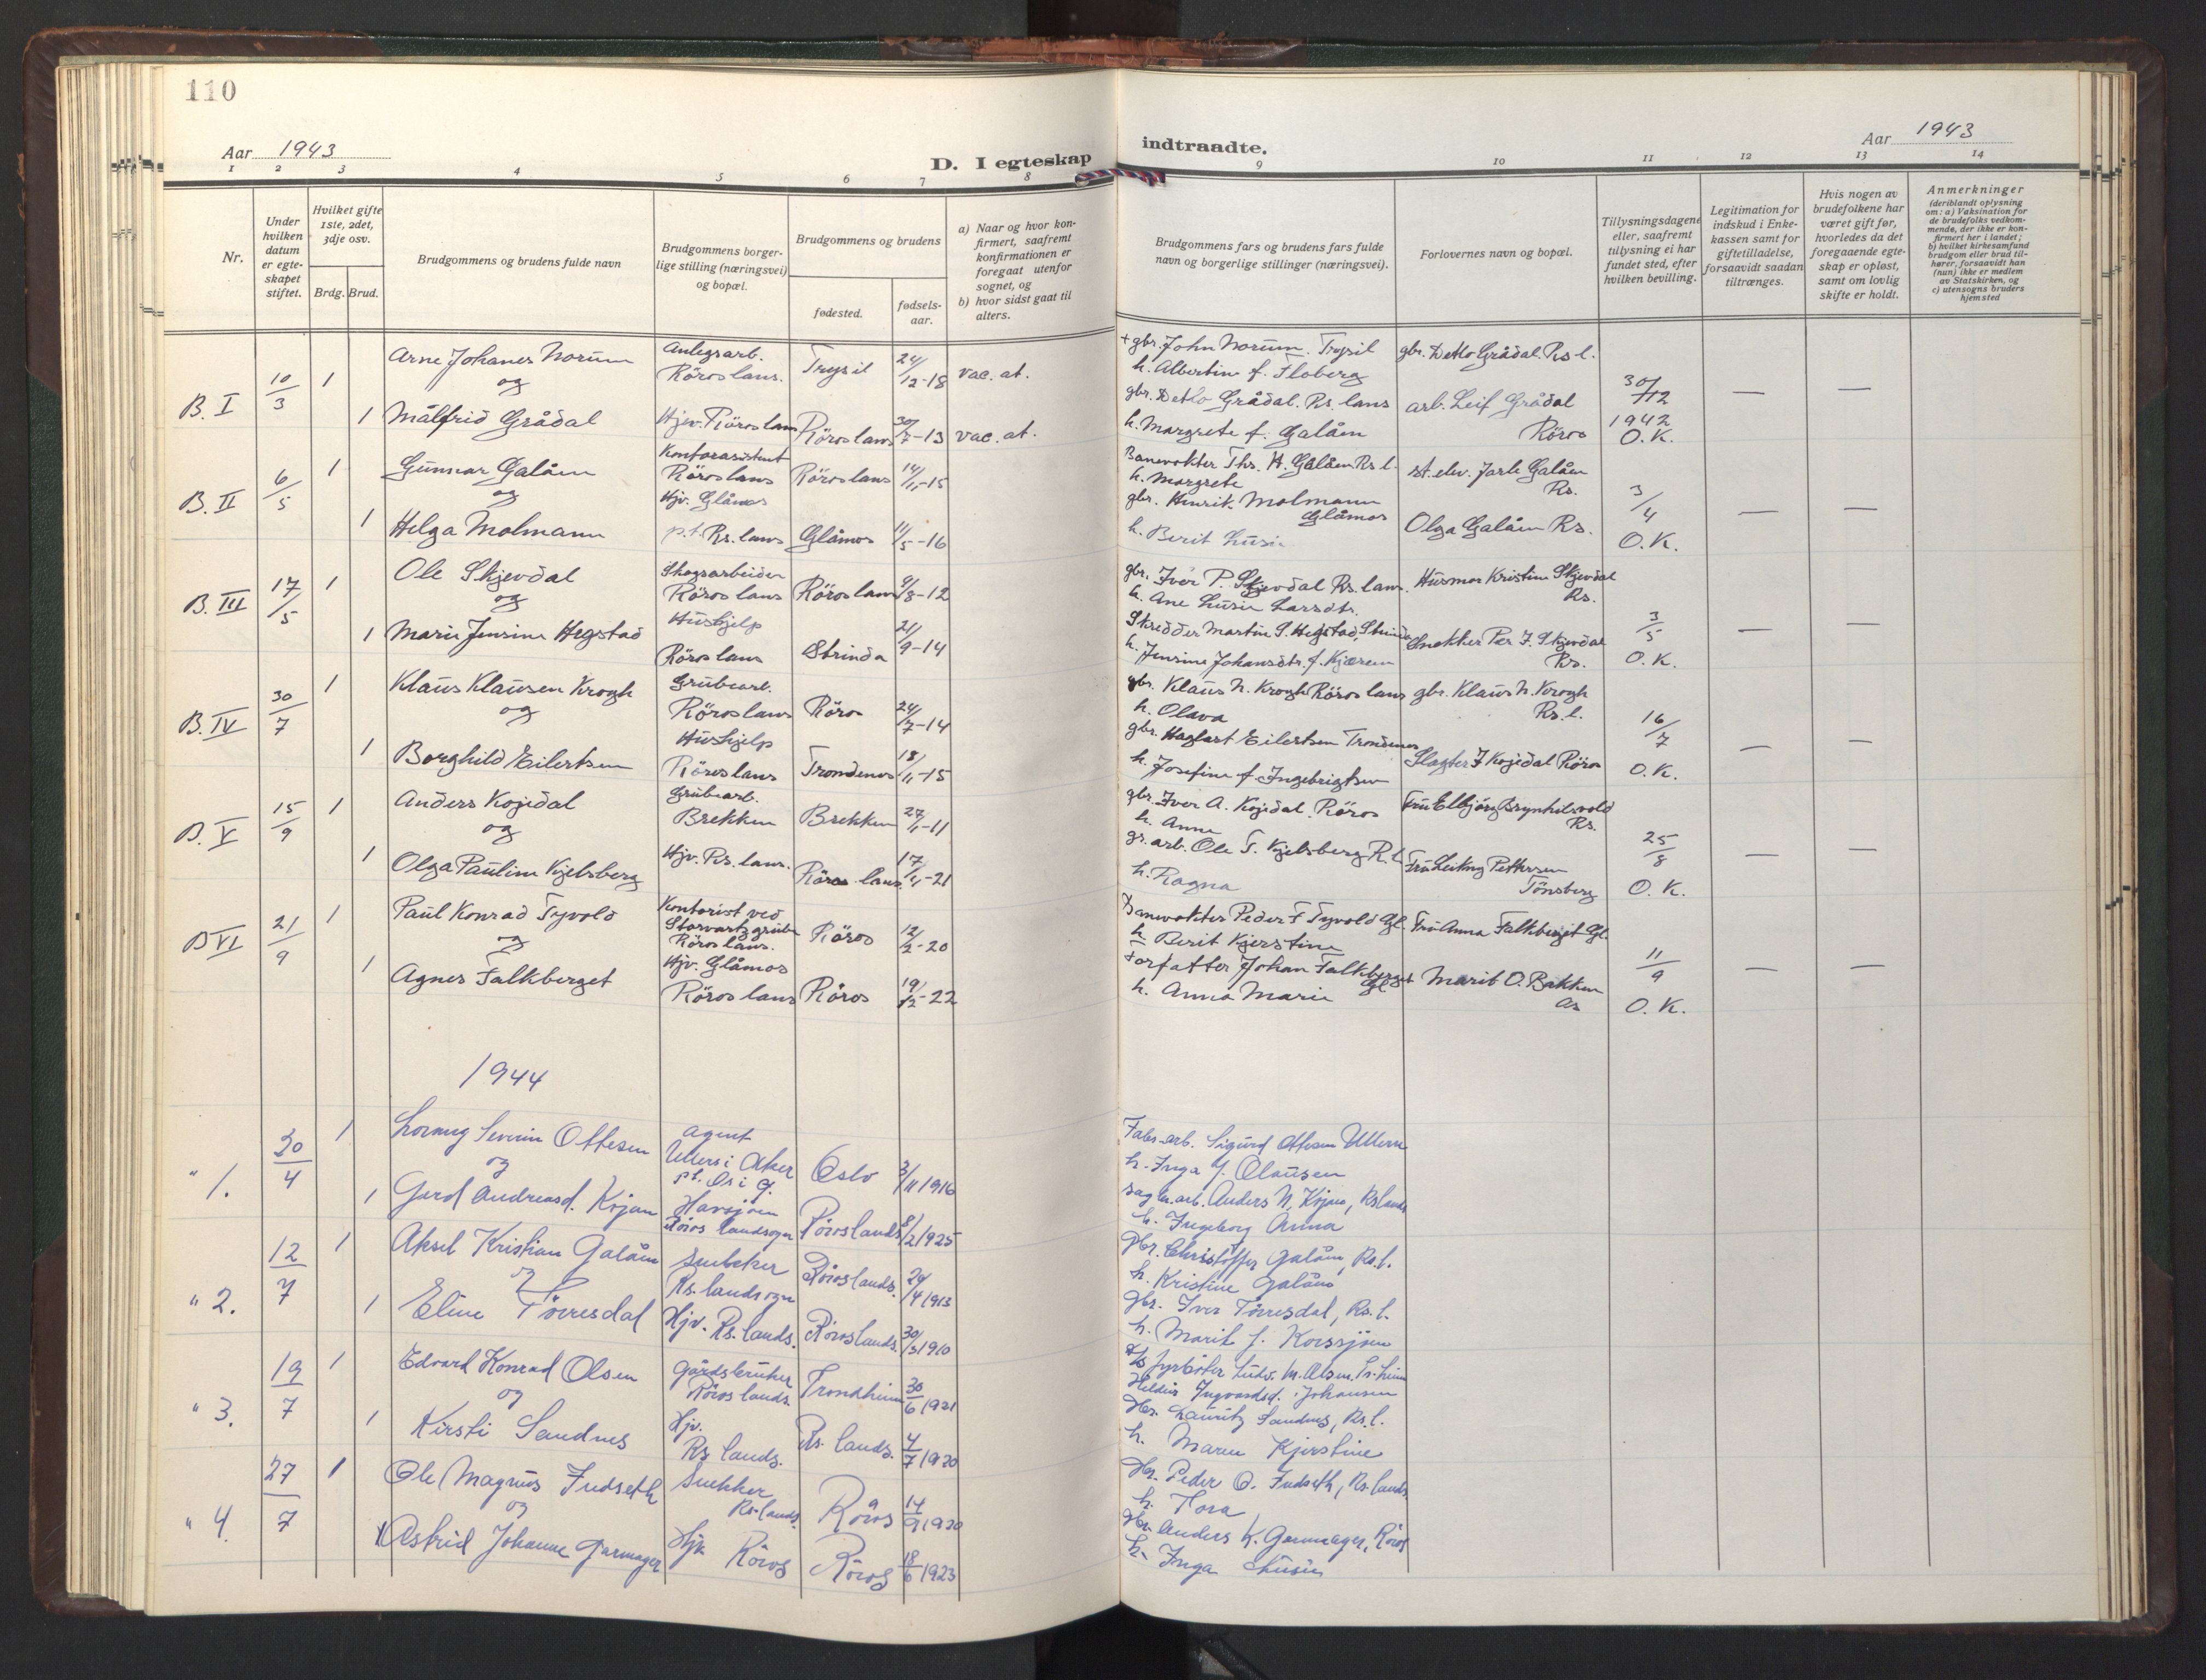 110
Aar 1943
D. I egteskap
indtraadte.
Aar 1943
1 2 3 4 5 6 7 8
9 10 11 12 13 14
Nr.
Under hvilken datum er egteskapet stiftet.
Hvilket gifte 1ste, 2det, 3dje osv.
Brdg. Brud.
Brudgommens og brudens fulde navn
Brudgommens borgerlige stilling (næringsvei) og bopæl.
Brudgommens og brudens
fødested.
fødselsaar.
a) Naar og hvor konfirmert, saafremt konfirmationen er foregaat utenfor sognet, og
b) hvor sidst gaat til alters.
Brudgommens fars og brudens fars fulde navn og borgerlige stillinger (næringsvei).
Forlovernes navn og bopæl.
Tillysningsdagene eller, saafremt tillysning ei har fundet sted, efter hvilken bevilling.
Legitimation for indskud i Enkekassen samt for giftetilladelse, forsaavidt saadan tiltrænges.
Hvis nogen av brudefolkene har været gift før, hvorledes da det foregaaende egteskap er opløst, samt om lovlig skifte er holdt.
Anmerkninger (deriblandt oplysning om: a) Vaksination for de brudefolks vedkommende, der ikke er konfirmert her i landet; b) hvilket kirkesamfund brudgom eller brud tilhører, forsaavidt han (hun) ikke er medlem av Statskirken, og c) utensogns bruders hjemsted
B. I 10/3 1 Arne Johanes Norum Anlegsarb. Röros lans. Trysil 24/12-18 vac. at.
og
1 Målfrid Grådal Hjv. Röros lans Röros lans 30/7-13 vac. at.
+ gbr. John Norum. Trysil
h. Albertine f. Floberg
gbr. Detlo Grådal. Rs. lans
h. Margrete f. Galåen
gbr. Detlo Grådal. Rs l.
arb. Leif Grådal Röros
30/12 1942 O.K. — —
B. II 6/5 1 Gunnar Galåen Kontorasistent Röros lans Röros lans 14/11-15
og
1 Helga Molmann Hjv. Glåmos p.t. Rs. lans Glåmos 11/5-16
Banevokter Ths. H. Galåen Rs l.
h. Margrete
gbr. Henrik Molmann Glåmos
h. Berit Lusie
st. elev. Jarle Galåen Rs.
Olga Galåen Rs.
3/4 O.K. — —
B. III 17/5 1 Ole Skjevdal Skogsarbeider Röros lans Röros lans 9/8-12
og
1 Marie Jensine Hegstad Hushjelp Röros lans Strinda 21/9-14
gbr. Iver P. Skjevdal Rs. lans.
h. Ane Lusie Larsdtr.
Skredder Martin S. Hegstad, Strinda
h. Jensine Johansdtr. f. Kjæren
Husmor Kristine Skjevdal Rs.
Snekker Per I. Skjevdal Rs.
3/5 O.K. — —
B. IV 30/7 1 Klaus Klausen Krogh Grubearb. Röros lans Röros 24/7-14
og
1 Borghild Eilertsen Hushjelp Röros lans Trondenes 18/11-15
gbr. Klaus N. Krogh Röros lans
h. Olava
gbr. Hagbart Eilertsen Trondenes
h. Josefine f. Ingebrigtsen
gbr. Klaus N. Krogh Rs. l.
Slagter I Kojedal Röros
16/7 O.K. — —
B. V 15/9 1 Anders Kojedal Grubearb. Brekken Brekken 27/1-11
og
1 Olga Pauline Kjelsberg Hjv. Rs. lans. Röros lans 17/4-21
gbr. Iver A. Kojedal. Röros
h. Anne
gr. arb. Ole T. Kjelsberg R. l.
h. Ragna
Fru Elbjörg Brynhilsvold Rs.
Fru Pettersen Tönsberg
25/8 O.K. — —
B VI 21/9 1 Paul Konrad Tyvold Kontorist ved Storvartz grube Röros lans. Röros 12/2-20
og
1 Agnes Falkberget Hjv. Glåmos Röros lans Röros 19/12-22
Banevokter Peder F Tyvold Gl.
h. Berit Kjerstine
Forfatter Johan Falkberget Gl.
h. Anna Marie
Fru Anna Falkberget Gl.
Marit O. Bakken Os
11/9 O.K. — —
1944
" 1. 30/4 1 Severin Ottesen agent Ullern i Aker p.t. Os i Ö. Oslo 3/11 1916
og
1 Gerd Andreasd. Kojan Havsjöen Röros landsogn Röros lands 8/2 1925
Fabr. arb. Sigurd Ottesen Ullern
h. Inga f. Olausen
sagbr. arb. Anders N. Kojan, Rs lands
h. Ingeborg Anna
" 2. 12/7 1 Aksel Kristian Galåen snekker Rs. landsogn Röros lands. 24/4 1913
og
1 Eline Törresdal Hjv. Rs. lands. Röros lands. 30/5 1910
Gbr. Christoffer Galåen, Rs. l.
h. Kristine Galåen
Gbr. Iver Törresdal, Rs. l.
h. Marit f. Korssjöen
" 3. 19/7 1 Edvard Konrad Olsen Gårdsbruker Röros lands. Trondheim 30/6 1921
og
1 Kirsti Sandnes Hjv. Rs lands. Rs. lands. 4/7 1920
fyrböter Ludv. M. Olsen, Tr.heim
Ingvardsd. Johansen
Gbr. Lauritz Sandnes, Rs. l.
h. Maren Kjerstine
" 4. 27/7 1 Ole Magnus Indseth Snekker Rs. lands. Röros 14/9 1920
og
1 Astrid Johanne Garmager Hjv. Röros Röros 18/6 1923
Gbr. Peder O. Indseth, Rs. lands.
h. Tora
Gbr. Anders K. Garmager, Röros
h. Inga Lusie